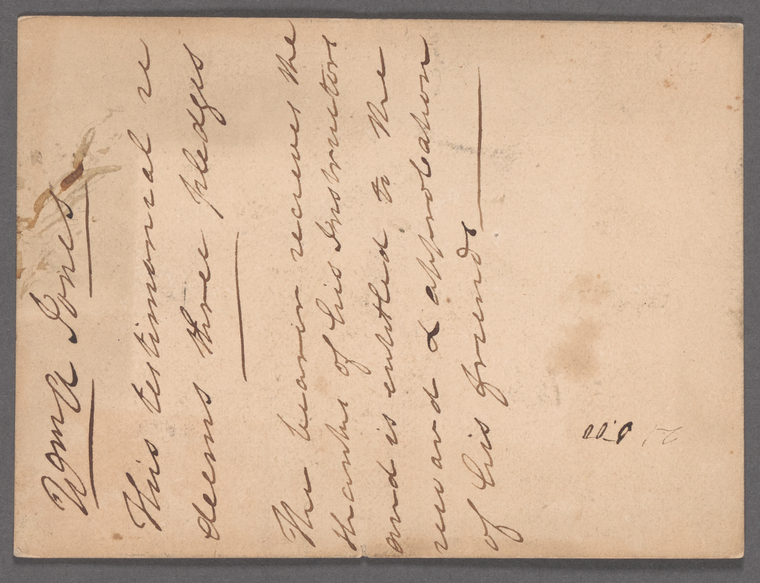 Wm A Jones
This testimonial re
deems three pledges
The bearer receives the
thanks of his Instructors
and is entitled to the
reward & approbation
of his friends